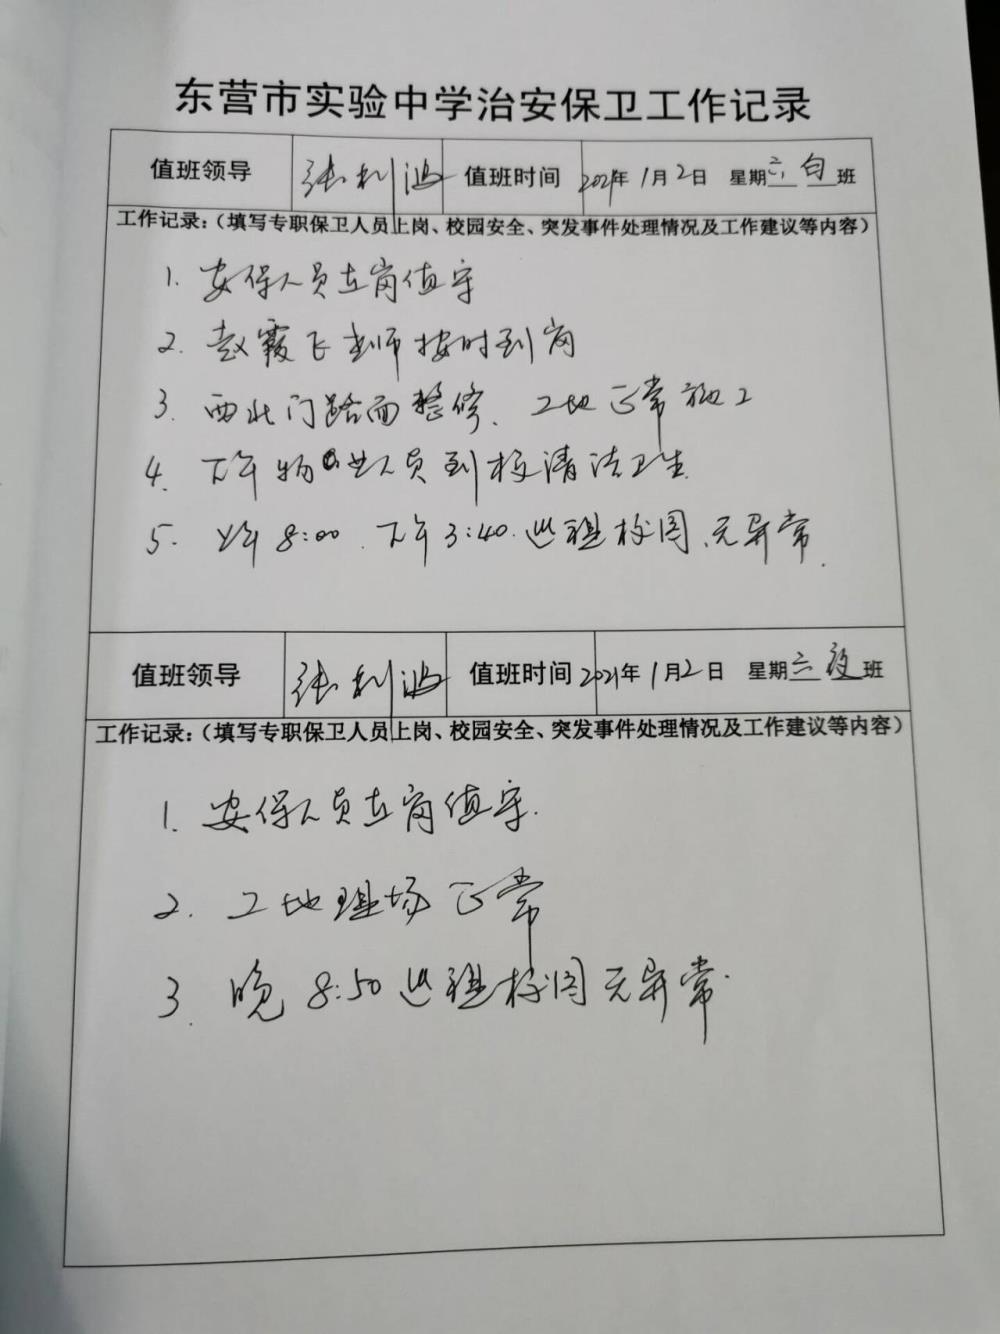 东营市实验中学治安保卫工作记录
值班领导 张利波 值班时间 2021年1月2日 星期六 白班
工作记录：（填写专职保卫人员上岗、校园安全、突发事件处理情况及工作建议等内容）
1. 安保人员在岗值守
2. 赵霞飞老师按时到岗
3. 西北门路面整修、工地正常施工
4. 下午物业人员到校清洁卫生
5. 上午8:00、下午3:40.巡视校园、无异常.
值班领导 张利波 值班时间 2021年1月2日 星期六 夜班
工作记录：（填写专职保卫人员上岗、校园安全、突发事件处理情况及工作建议等内容）
1. 安保人员在岗值守.
2. 工地现场正常
3. 晚8:50巡视校园无异常.